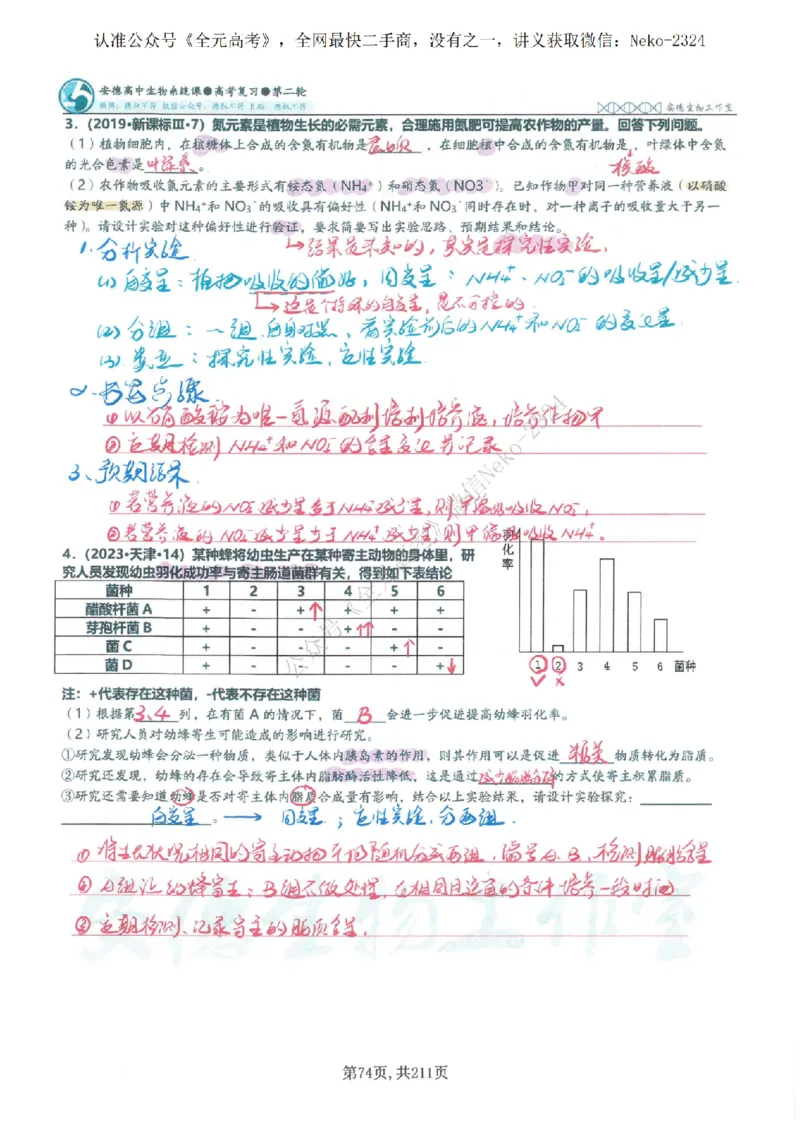 认准公众号《全元高考》，全网最快二手商，没有之一，讲义获取微信：Neko-2324
安德高中生物系统课●高考复习●第二轮
安德生物工作室
3.（2019·新课标Ⅲ·7）氮元素是植物生长的必需元素，合理施用氮肥可提高农作物的产量。回答下列问题。
（1）植物细胞内，在核糖体上合成的含氮有机物是蛋白质，在细胞核中合成的含氮有机物是，叶绿体中含氮
核酸
的光合色素是叶绿素。
（2）农作物吸收氮元素的主要形式有铵态氮（NH4⁺）和硝态氮（NO3⁻）。已知作物甲对同一种营养液（以硝酸
铵为唯一氮源）中 NH4⁺和 NO3⁻的吸收具有偏好性（NH4⁺和 NO3⁻同时存在时，对一种离子的吸收量大于另一
种）。请设计实验对这种偏好性进行验证，要求简要写出实验思路、预期结果和结论。
1.分析实验
→结果是未知的，其实是探究性实验，
(1) 自变量：植物吸收的偏好，因变量：NH4⁺、NO3⁻的吸收量/减少量
→这是个特殊的自变量，是不可控的
(2) 分组：一组，自身对照，看实验前后的NH4⁺和NO3⁻的变化量
(3) 类型：探究性实验，定性实验
2.书写步骤
①以硝酸铵为唯一氮源配制培养液，培养作物甲
②定期检测NH4⁺和NO3⁻的含量变化并记录
3、预期结果
①若营养液的NO3⁻减少量多于NH4⁺减少量，则甲偏好吸收NO3⁻，
②若营养液的NO3⁻减少量少于NH4⁺减少量，则甲偏好吸收NH4⁺。
4.（2023·天津·14）某种蜂将幼虫生产在某种寄主动物的身体里，研
究人员发现幼虫羽化成功率与寄主肠道菌群有关，得到如下表结论
菌种 1 2 3 4 5 6
醋酸杆菌 A + - +↑ + + +
芽孢杆菌 B + - - +↑↑ - -
菌 C + - - - +↑ -
菌 D + - - - - +↓
羽化率
1 2 3 4 5 6 菌种
✓ ×
注：+代表存在这种菌，-代表不存在这种菌
（1）根据第3、4列，在有菌 A 的情况下，菌B会进一步促进提高幼蜂羽化率。
（2）研究人员对幼蜂寄生可能造成的影响进行研究。
①研究发现幼蜂会分泌一种物质，类似于人体内胰岛素的作用，则其作用可以是促进糖类物质转化为脂质。
②研究还发现，幼蜂的存在会导致寄主体内脂肪酶活性降低，这是通过减少脂肪分解的方式使寄主积累脂质。
③研究还需要知道幼蜂是否对寄主体内脂质合成量有影响，结合以上实验结果，请设计实验探究：
自变量。→ 因变量；定性实验，分两组．
①将生长状况相同的寄主动物平均随机分成两组，编号A、B，检测脂肪含量
②A组让幼蜂寄生；B组不做处理，在相同且适宜的条件培养一段时间
③定期检测、记录寄主的脂质含量，
安德生物工作室
第74页,共211页